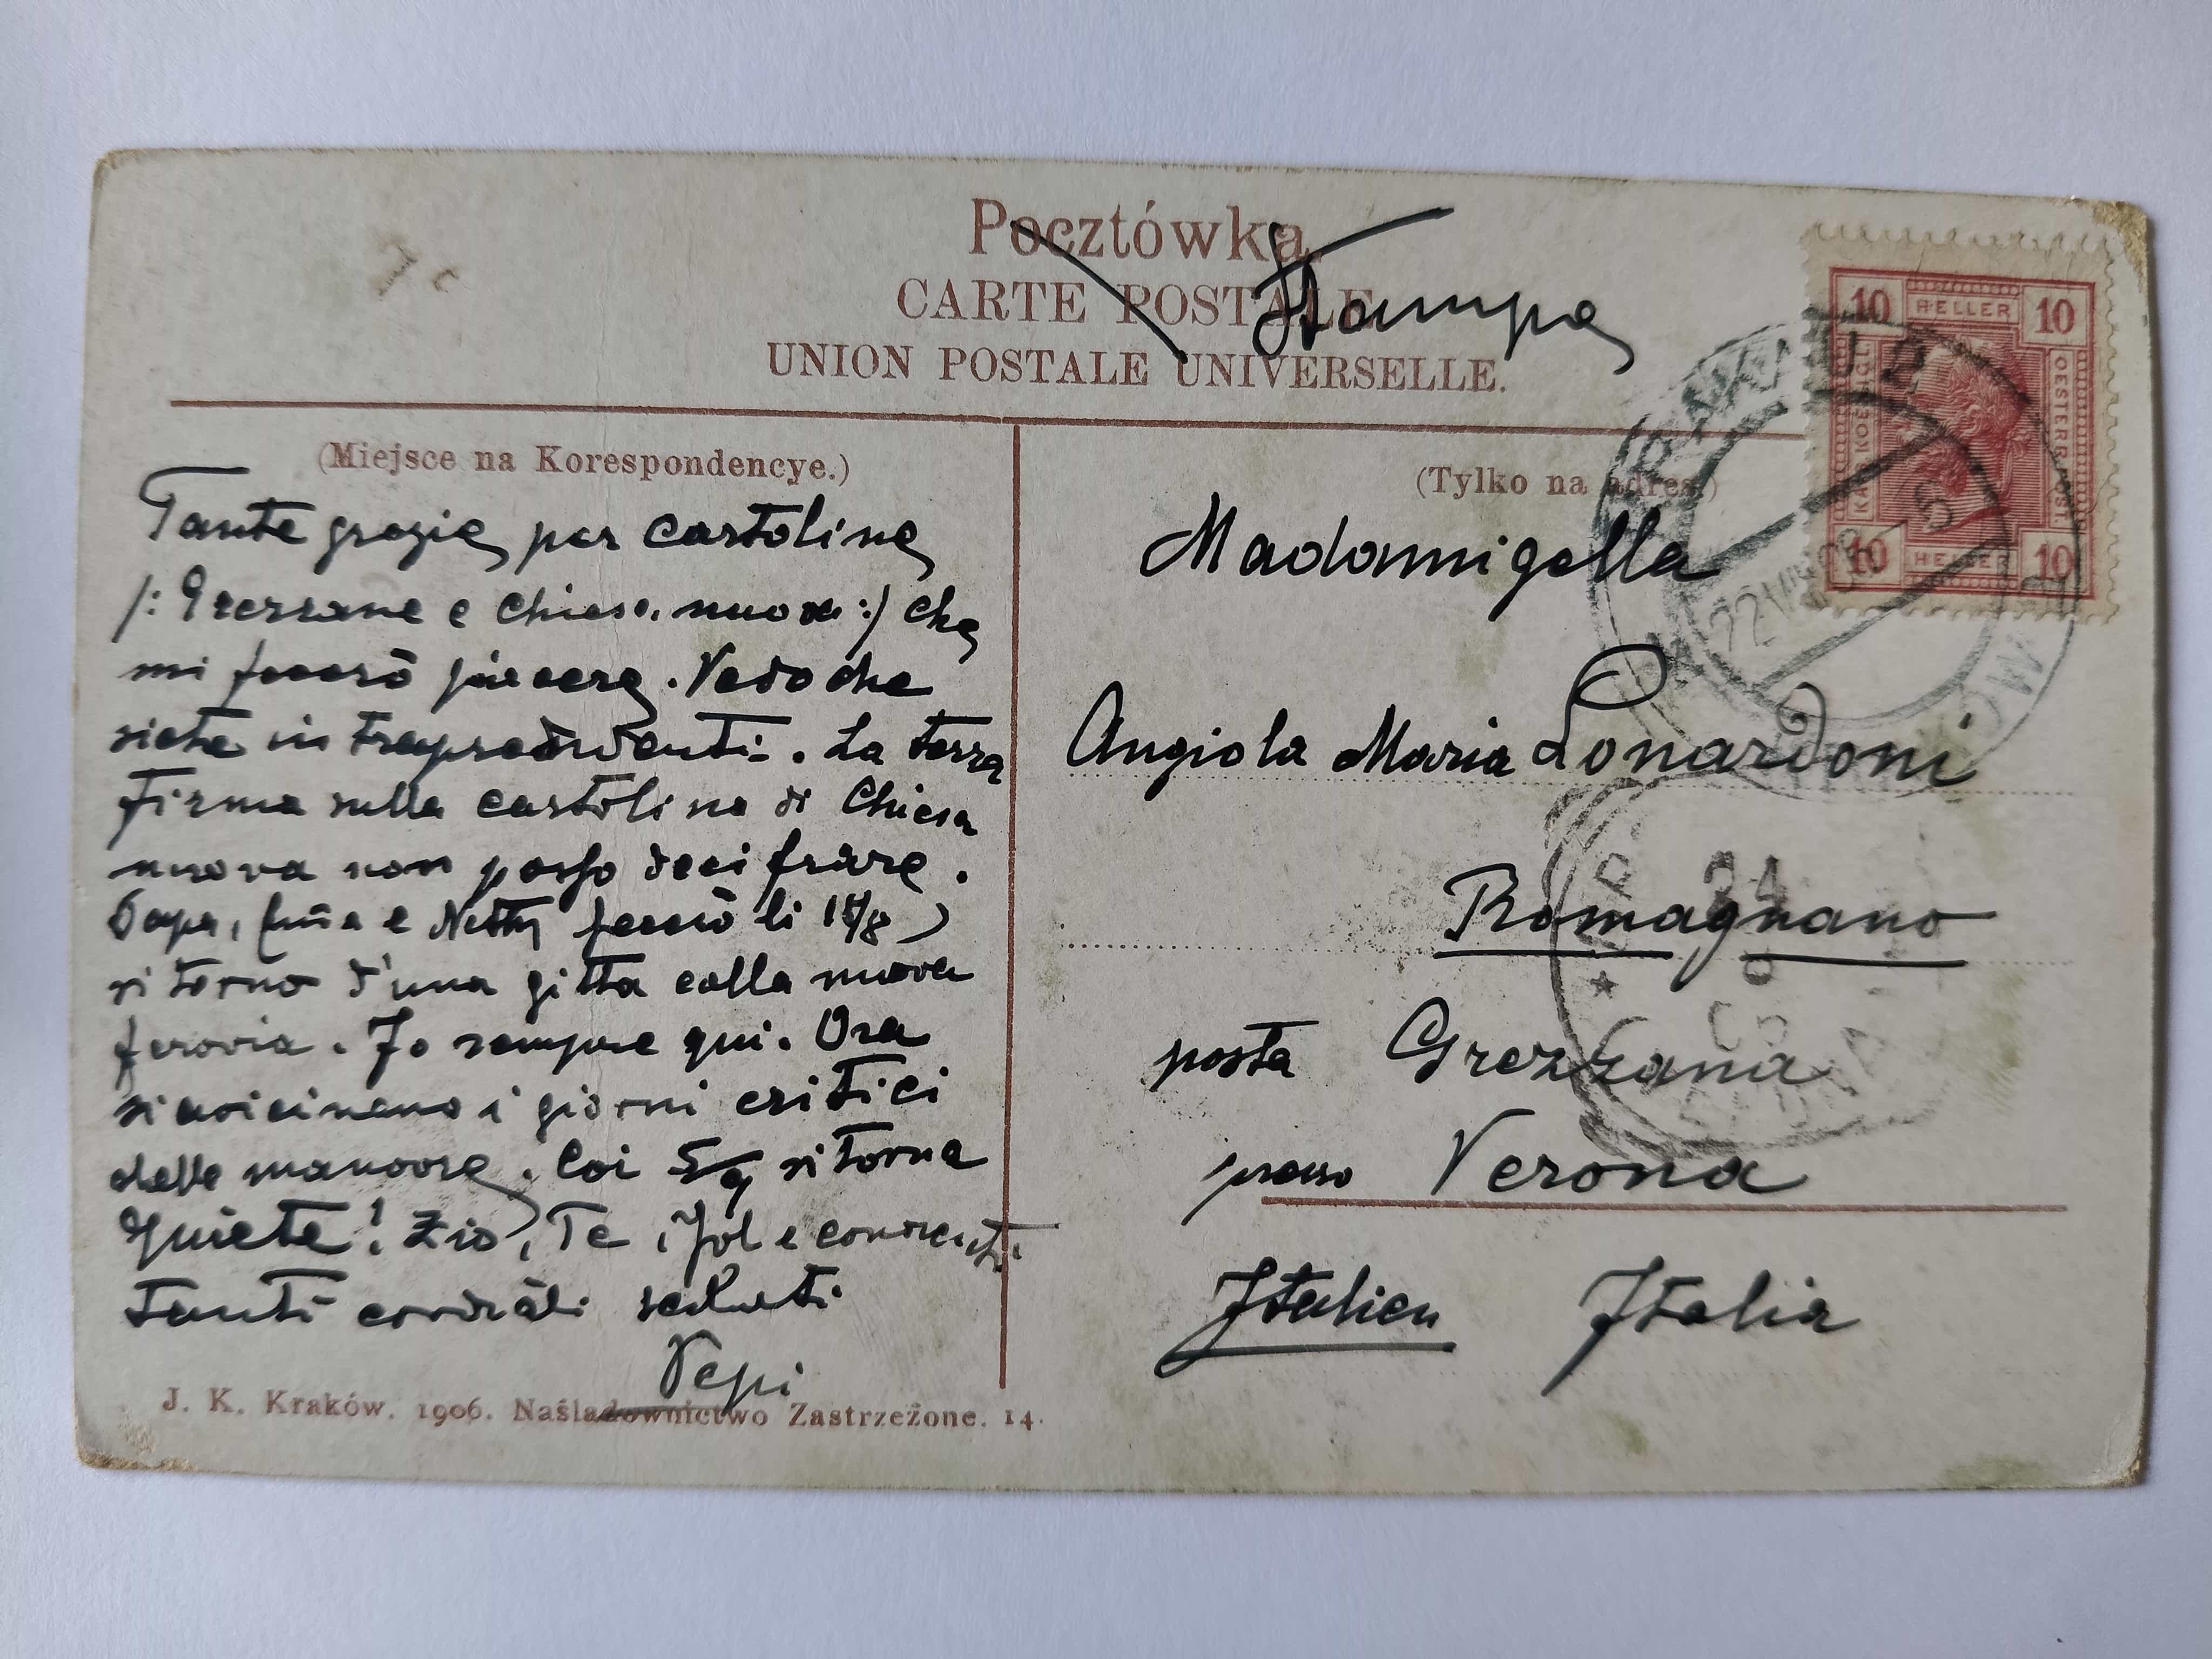 Pocztówka
CARTE POSTALE
Stampa
UNION POSTALE UNIVERSELLE.
10 HELLER 10
KAIS KOENIGL
OESTERR POST
10 HELLER 10
KRAKAU 2
22 VIII 08 - 5
KRAKOW 2
(Miejsce na Korespondencye.)
Tante grazie per cartoline
/: Grezzane e Chiesa nuova :/ che
mi fecerò piacere. Vedo che
siete in intraprendenti. La terza
firma sulla cartolina di Chiesa
nuova non posso decifrare.
Papa, e Netty fecerò li 18/8
ritorno d'una gitta colla nuova
ferovia. Io sempre qui. Ora
si avicinano i giorni critici
delle manovre. Coi 5/9 ritorna
quiete! Zio, Te, e
tanti cordiali saluti
Pepi
J. K. Kraków. 1906. Naśladownictwo Zastrzeżone. 14.
(Tylko na adres.)
Madamigella
Angiola Maria Lonardoni
Romagnano
posta Grezzana
presso Verona
Italien Italia
24
8